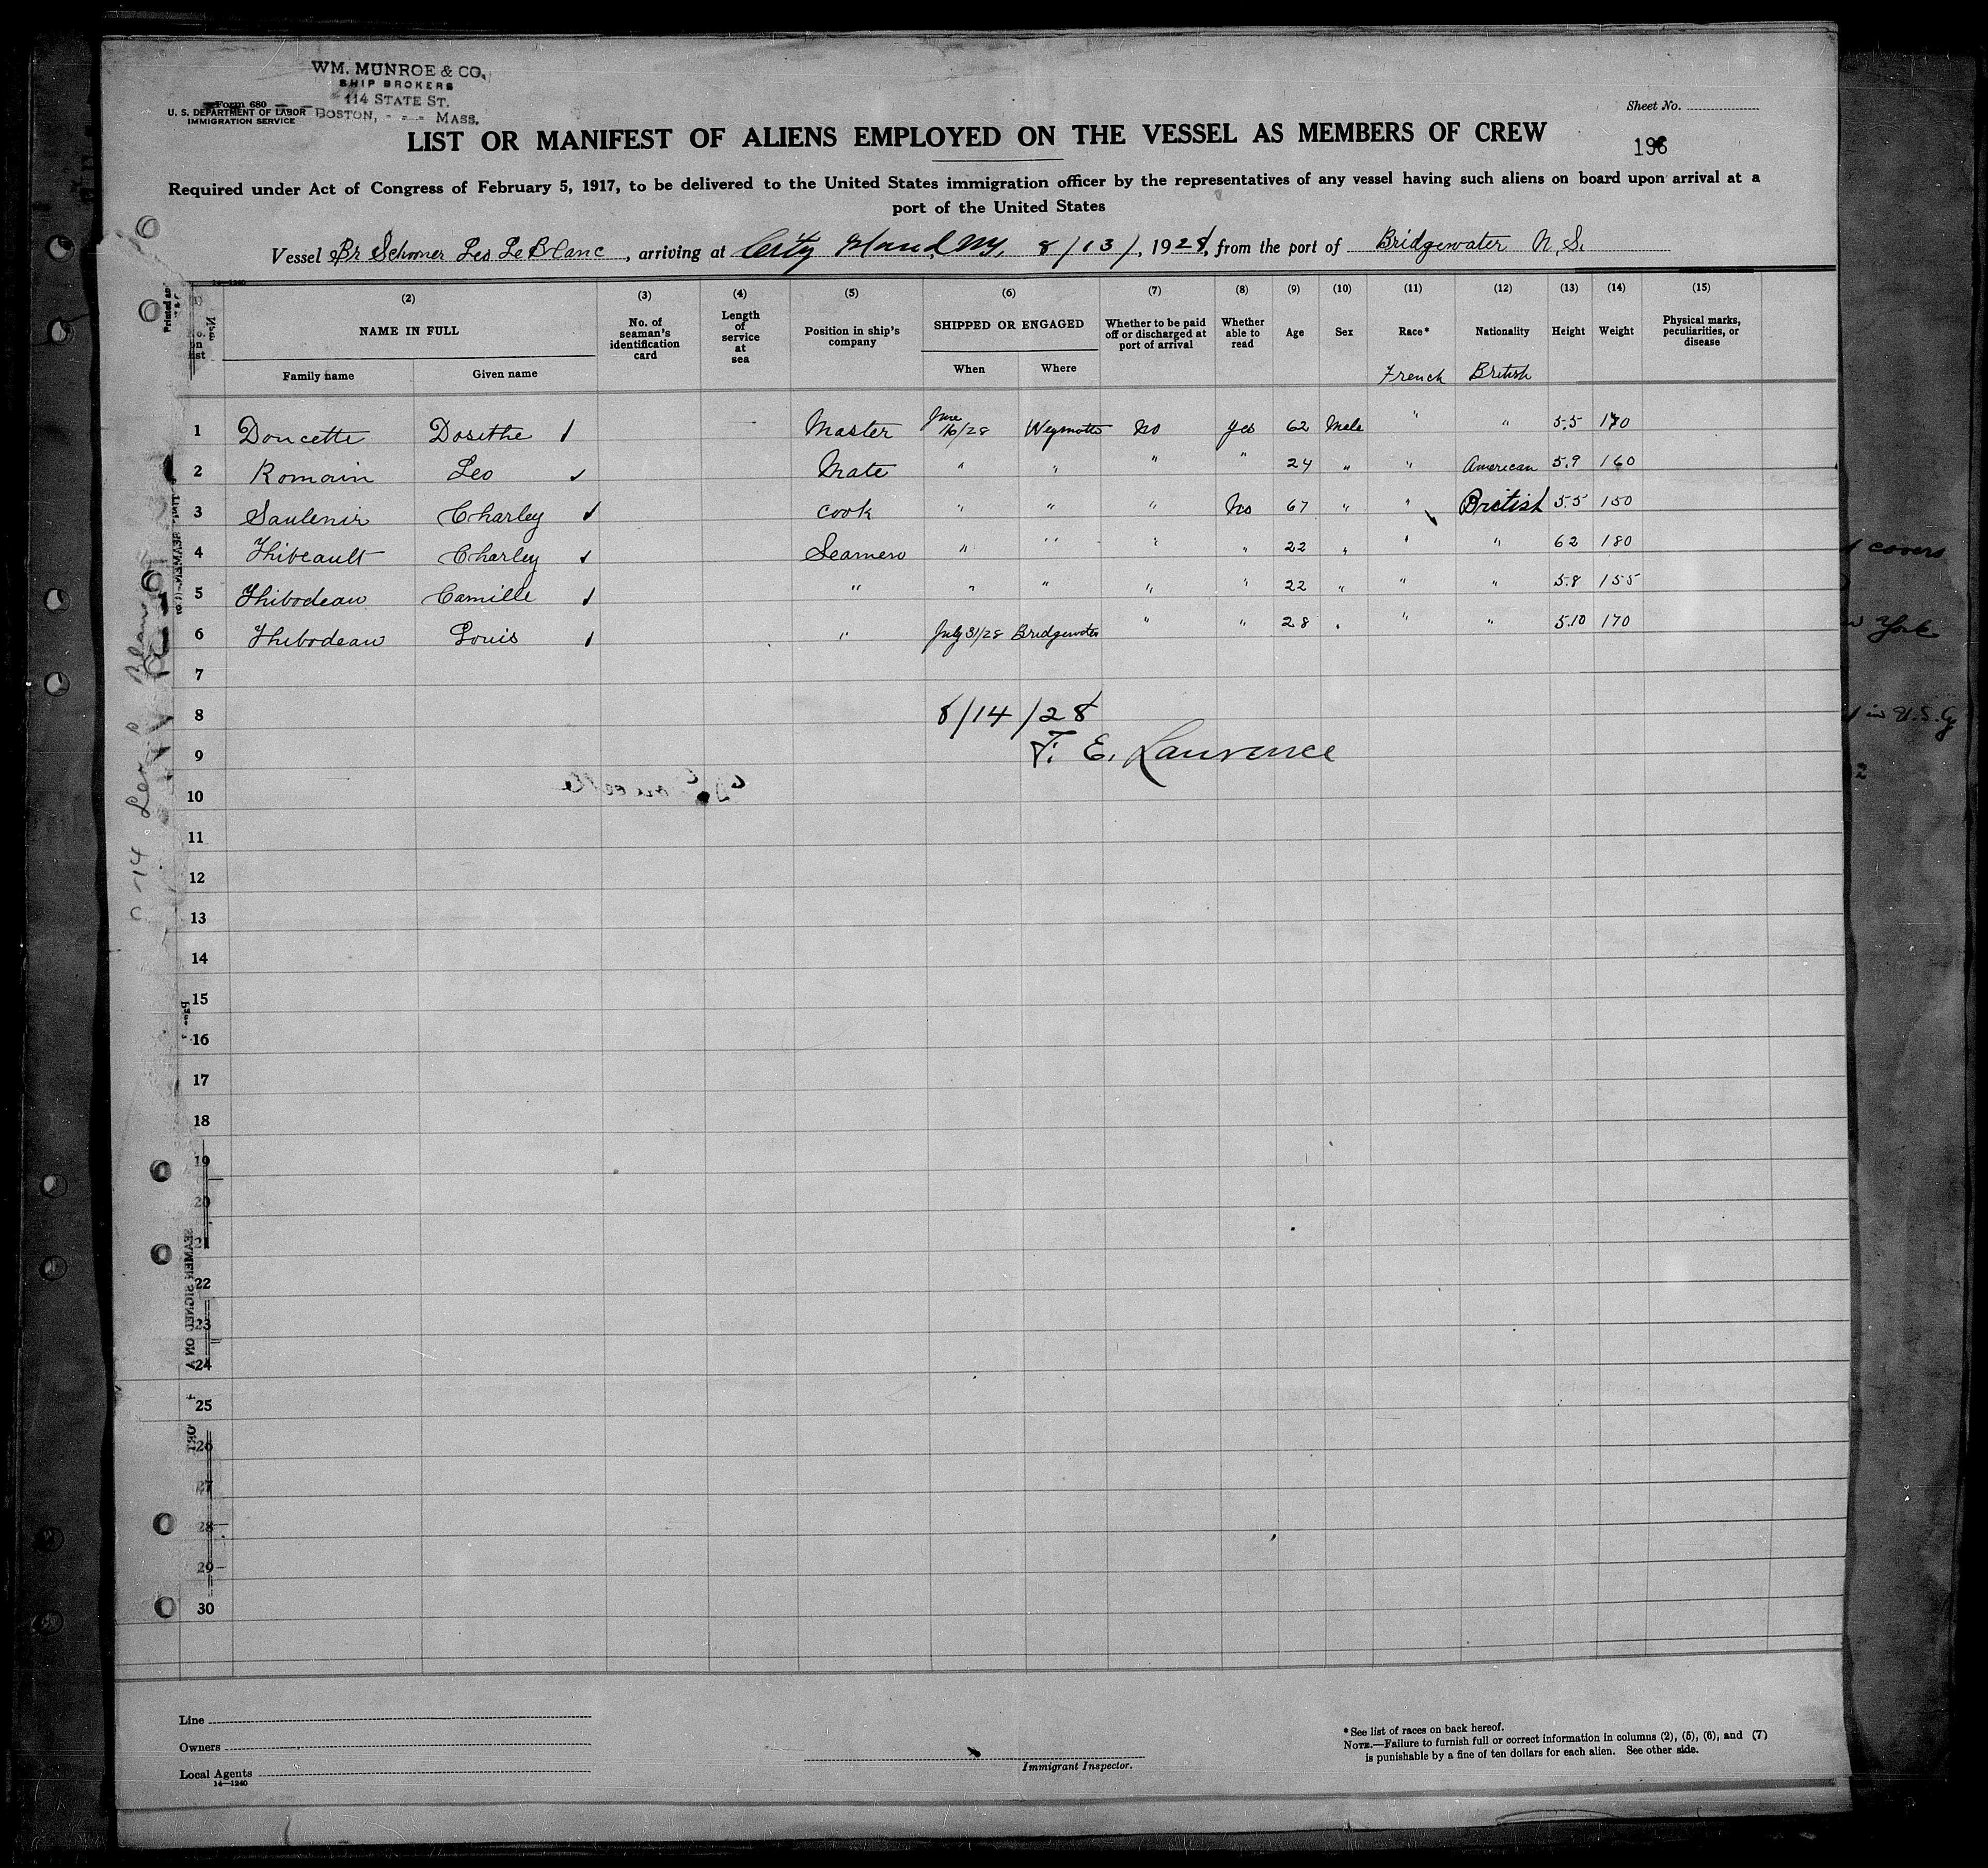 WM. MUNROE & CO.
SHIP BROKERS
114 STATE ST.
BOSTON, - - - MASS.
Form 680
U. S. DEPARTMENT OF LABOR
IMMIGRATION SERVICE
Sheet No.
LIST OR MANIFEST OF ALIENS EMPLOYED ON THE VESSEL AS MEMBERS OF CREW
196
Required under Act of Congress of February 5, 1917, to be delivered to the United States immigration officer by the representatives of any vessel having such aliens on board upon arrival at a
port of the United States
Vessel Br Schooner Leo LeBlanc, arriving at City Island, NY, 8/13/, 1928, from the port of Bridgewater N.S.
(2) (3) (4) (5) (6) (7) (8) (9) (10) (11) (12) (13) (14) (15)
No. on list
NAME IN FULL
Family name Given name
No. of seaman's identification card
Length of service at sea
Position in ship's company
SHIPPED OR ENGAGED
When Where
Whether to be paid off or discharged at port of arrival
Whether able to read
Age
Sex
Race*
Nationality
Height
Weight
Physical marks, peculiarities, or disease
French British
1 Doucette Dosithe Master June 16/28 Weymouth No yes 62 Male " " 5.5 170
2 Romain Leo Mate " " " " 24 " " American 5.9 160
3 Saulenir Charley cook " " " No 67 " " British 5.5 150
4 Thibeault Charley Seamen " " " " 22 " " " 62 180
5 Thibodeau Camille " " " " " 22 " " " 5.8 155
6 Thibodeau Louis " July 31/28 Bridgewater " " 28 " " " 5.10 170
7
8 8/14/28
9 F. E. Lawrence
10
11
12
13
14
15
16
17
18
19
20
21
22
23
24
25
26
27
28
29
30
Line
Owners
Local Agents
14—1240
Immigrant Inspector.
*See list of races on back hereof.
NOTE.—Failure to furnish full or correct information in columns (2), (5), (6), and (7)
is punishable by a fine of ten dollars for each alien. See other side.
covers
York
in U.S.